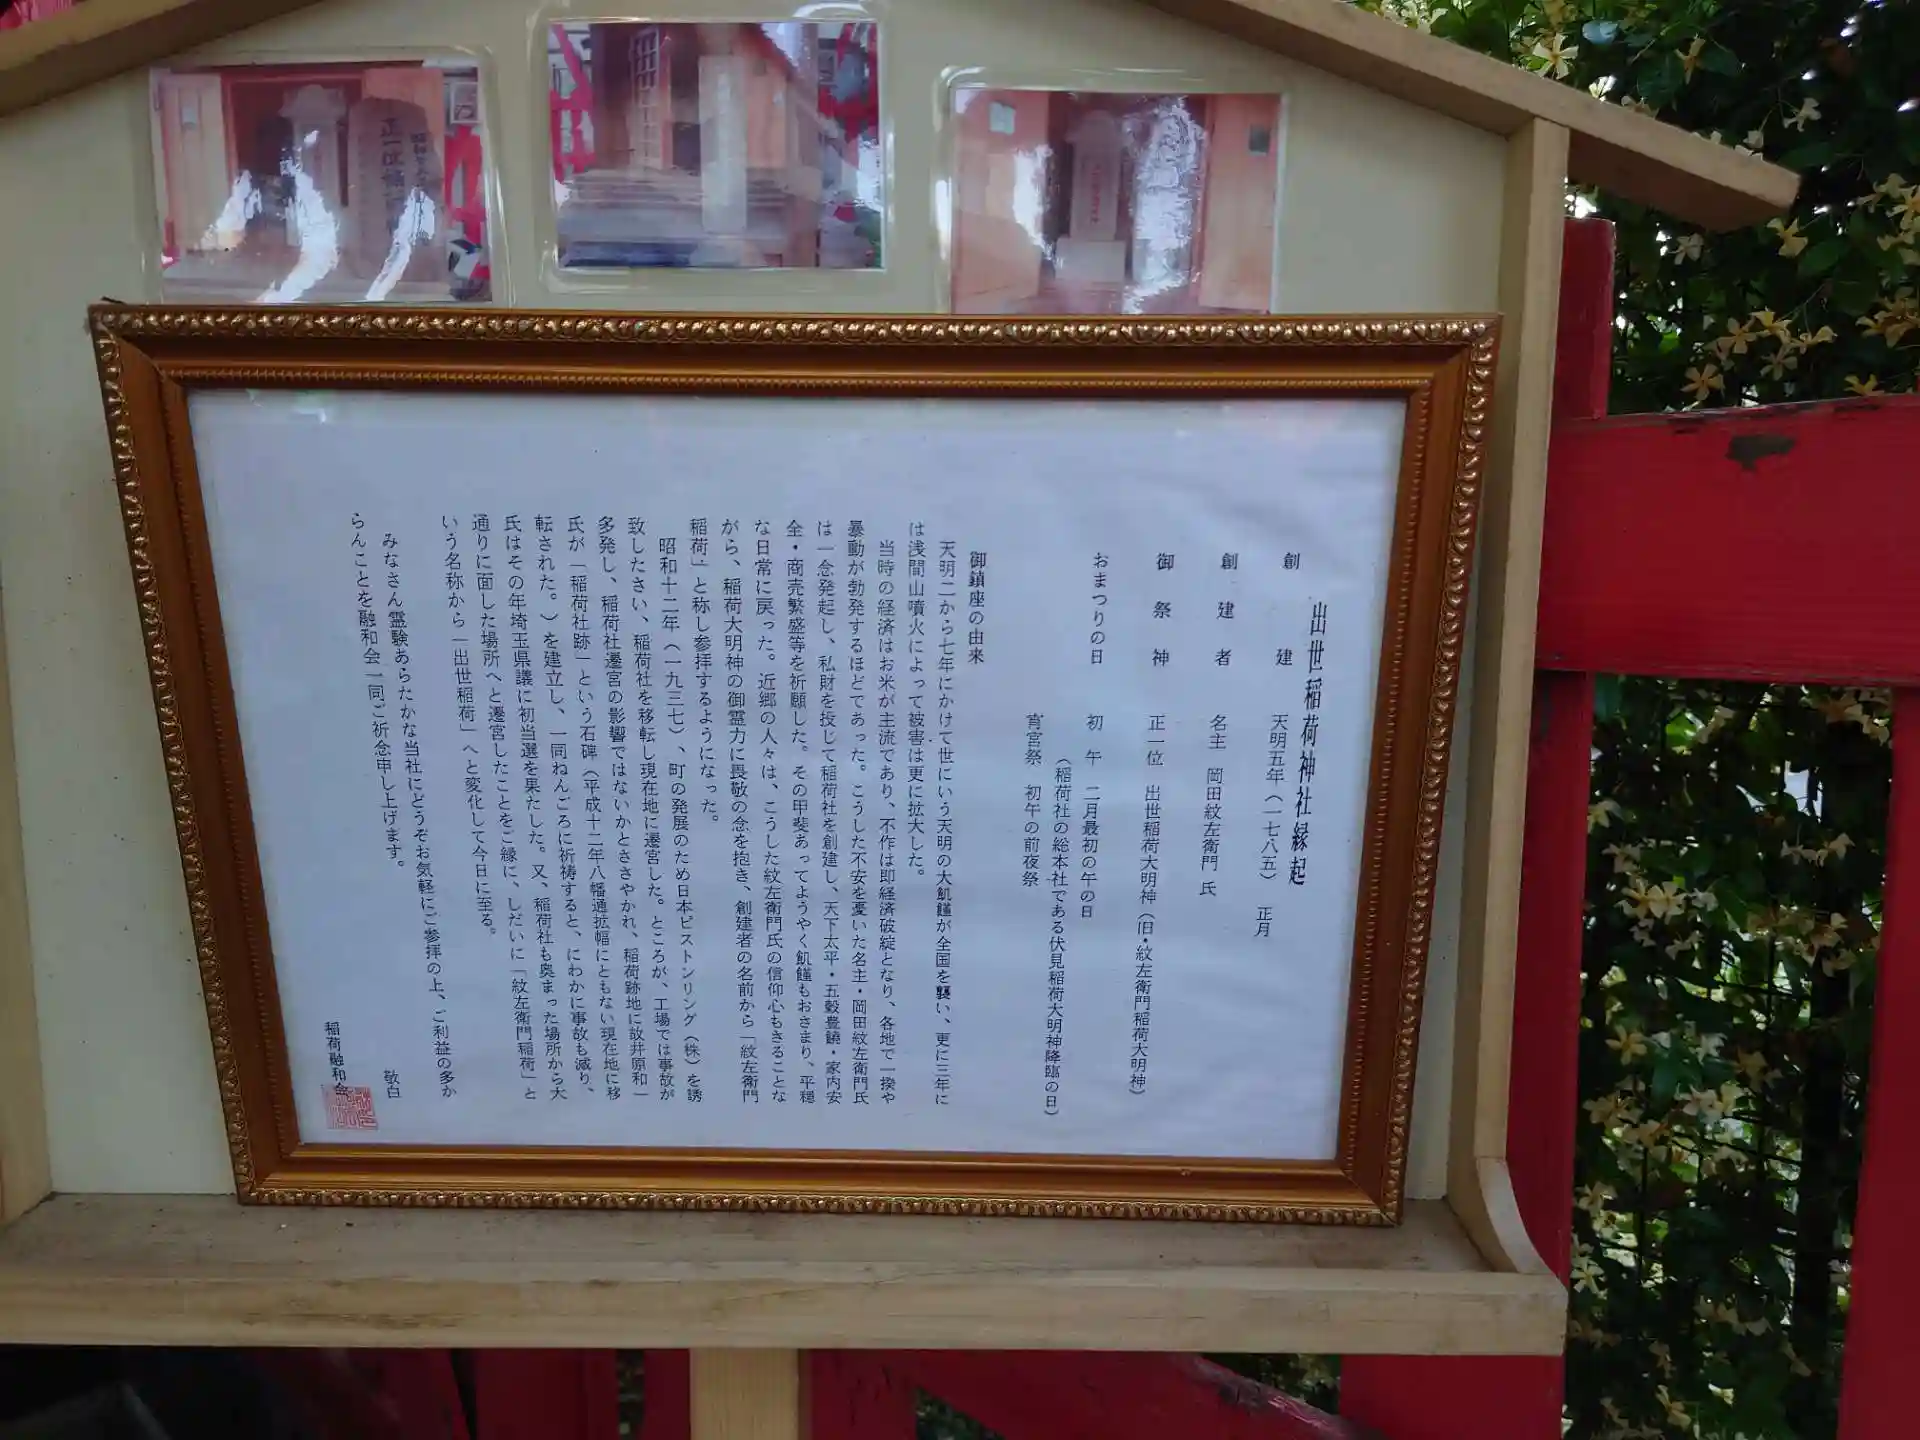 出世稲荷神社縁起
創建 天明五年(一七八五) 正月
創建者 名主 岡田紋左衛門 氏
御祭神 正一位 出世稲荷大明神(旧・紋左衛門稲荷大明神)
おまつりの日 初午 二月最初の午の日
(稲荷社の総本社である伏見稲荷大明神降臨の日)
宵宮祭 初午の前夜祭
御鎮座の由来
天明二から七年にかけて世にいう天明の大飢饉が全国を襲い、更に三年に
は浅間山噴火によって被害は更に拡大した。
当時の経済はお米が主流であり、不作は即経済破綻となり、各地で一揆や
暴動が勃発するほどであった。こうした不安を憂いた名主・岡田紋左衛門氏
は一念発起し、私財を投じて稲荷社を創建し、天下太平・五穀豊饒・家内安
全・商売繁盛等を祈願した。その甲斐あってようやく飢饉もおさまり、平穏
な日常に戻った。近郷の人々は、こうした紋左衛門氏の信仰心もさることな
がら、稲荷大明神の御霊力に畏敬の念を抱き、創建者の名前から「紋左衛門
稲荷」と称し参拝するようになった。
昭和十二年(一九三七)、町の発展のため日本ピストンリング(株)を誘
致したさい、稲荷社を移転し現在地に遷宮した。ところが、工場では事故が
多発し、稲荷社遷宮の影響ではないかとささやかれ、稲荷跡地に故井原和一
氏が「稲荷社跡」という石碑(平成十二年八幡通拡幅にともない現在地に移
転された。)を建立し、一同ねんごろに祈祷すると、にわかに事故も減り、
氏はその年埼玉県議に初当選を果たした。又、稲荷社も奥まった場所から大
通りに面した場所へと遷宮したことをご縁に、しだいに「紋左衛門稲荷」と
いう名称から「出世稲荷」へと変化して今日に至る。
みなさん霊験あらたかな当社にどうぞお気軽にご参拝の上、ご利益の多か
らんことを融和会一同ご祈念申し上げます。
敬白
稲荷融和会
正一位稲